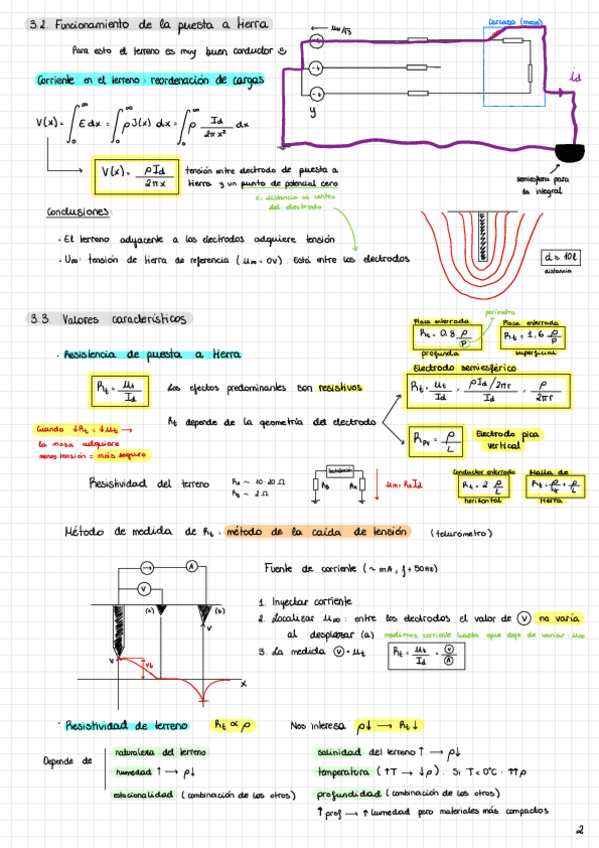 3.2. Funcionamiento de la puesta a tierra
Para esto el terreno es muy buen conductor
Corriente en el terreno: reordenación de cargas
V(x) = ∫₀^∞ E dx = ∫₀^∞ ρJ(x) dx = ∫₀^∞ ρ Id/2πx² dx
V(x) = ρId/2πx
tensión entre electrodo de puesta a
tierra y un punto de potencial cero
x: distancia al centro
del electrodo
Carcasa (masa)
id
y
semiesfera para
la integral
d ≥ 10l
distancia
Conclusiones:
· El terreno adyacente a los electrodos adquiere tensión
· U∞: tensión de tierra de referencia (u∞ = 0V). Está entre los electrodos
3.3. Valores característicos
· Resistencia de puesta a tierra
Rt = ut/Id
los efectos predominantes son resistivos
Cuando ↓Rt = ↓ut →
la masa adquiere
menos tensión = más seguro
Rt depende de la geometría del electrodo
perímetro
Placa enterrada
Rt = 0,8 ρ/P
profunda
Placa enterrada
Rt = 1,6 ρ/P
superficial
Electrodo semiesférico
Rt = ut/Id = ρId/2πr/Id = ρ/2πr
Rpv = ρ/L
Electrodo pica
vertical
Conductor enterrado
Rt = 2 ρ/L
horizontal
Malla de
tierra
Resistividad del terreno
RA ~ 10-20 Ω
RB ~ 2 Ω
Instalación
RB
RA
um = RA Id
Método de medida de Rt: método de la caída de tensión (telurómetro)
A
V
(a)
(b)
V
V
Vt
x
Fuente de corriente (~ mA, f ≠ 50Hz)
1. Inyectar corriente
2. Localizar u∞: entre los electrodos el valor de V no varía
al desplazar (a) medimos corriente hasta que deje de variar = u∞
3. La medida V = ut
Rt = ut/Id = V/A
· Resistividad de terreno Rt ∝ ρ
Nos interesa ρ↓ → Rt↓
Depende de
naturaleza del terreno
humedad ↑ → ρ↓
estacionalidad (combinación de los otros)
salinidad del terreno ↑ → ρ↓
temperatura (↑T → ↓ρ). Si T<0°C: ↑↑ρ
profundidad (combinación de los otros)
↑prof → ↑humedad pero materiales más compactos
2